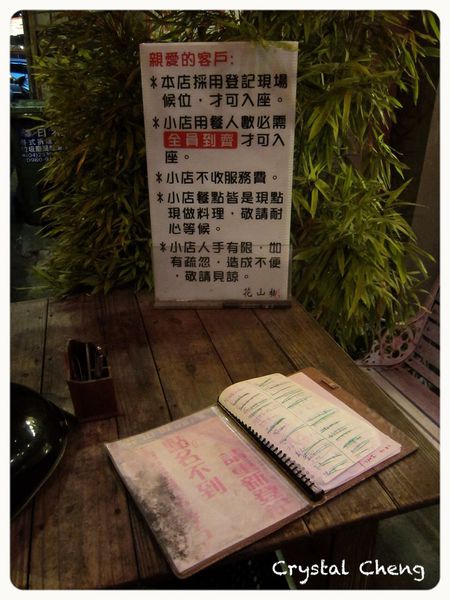 親愛的客戶:
*本店採用登記現場
候位，才可入座。
*小店用餐人數必需
全員到齊才可入
座。
*小店不收服務費。
*小店餐點皆是現點
現做料理，敬請耐
心等候。
*小店人手有限，如
有疏忽，造成不便
，敬請見諒。
花山
點名不到
Crystal Cheng